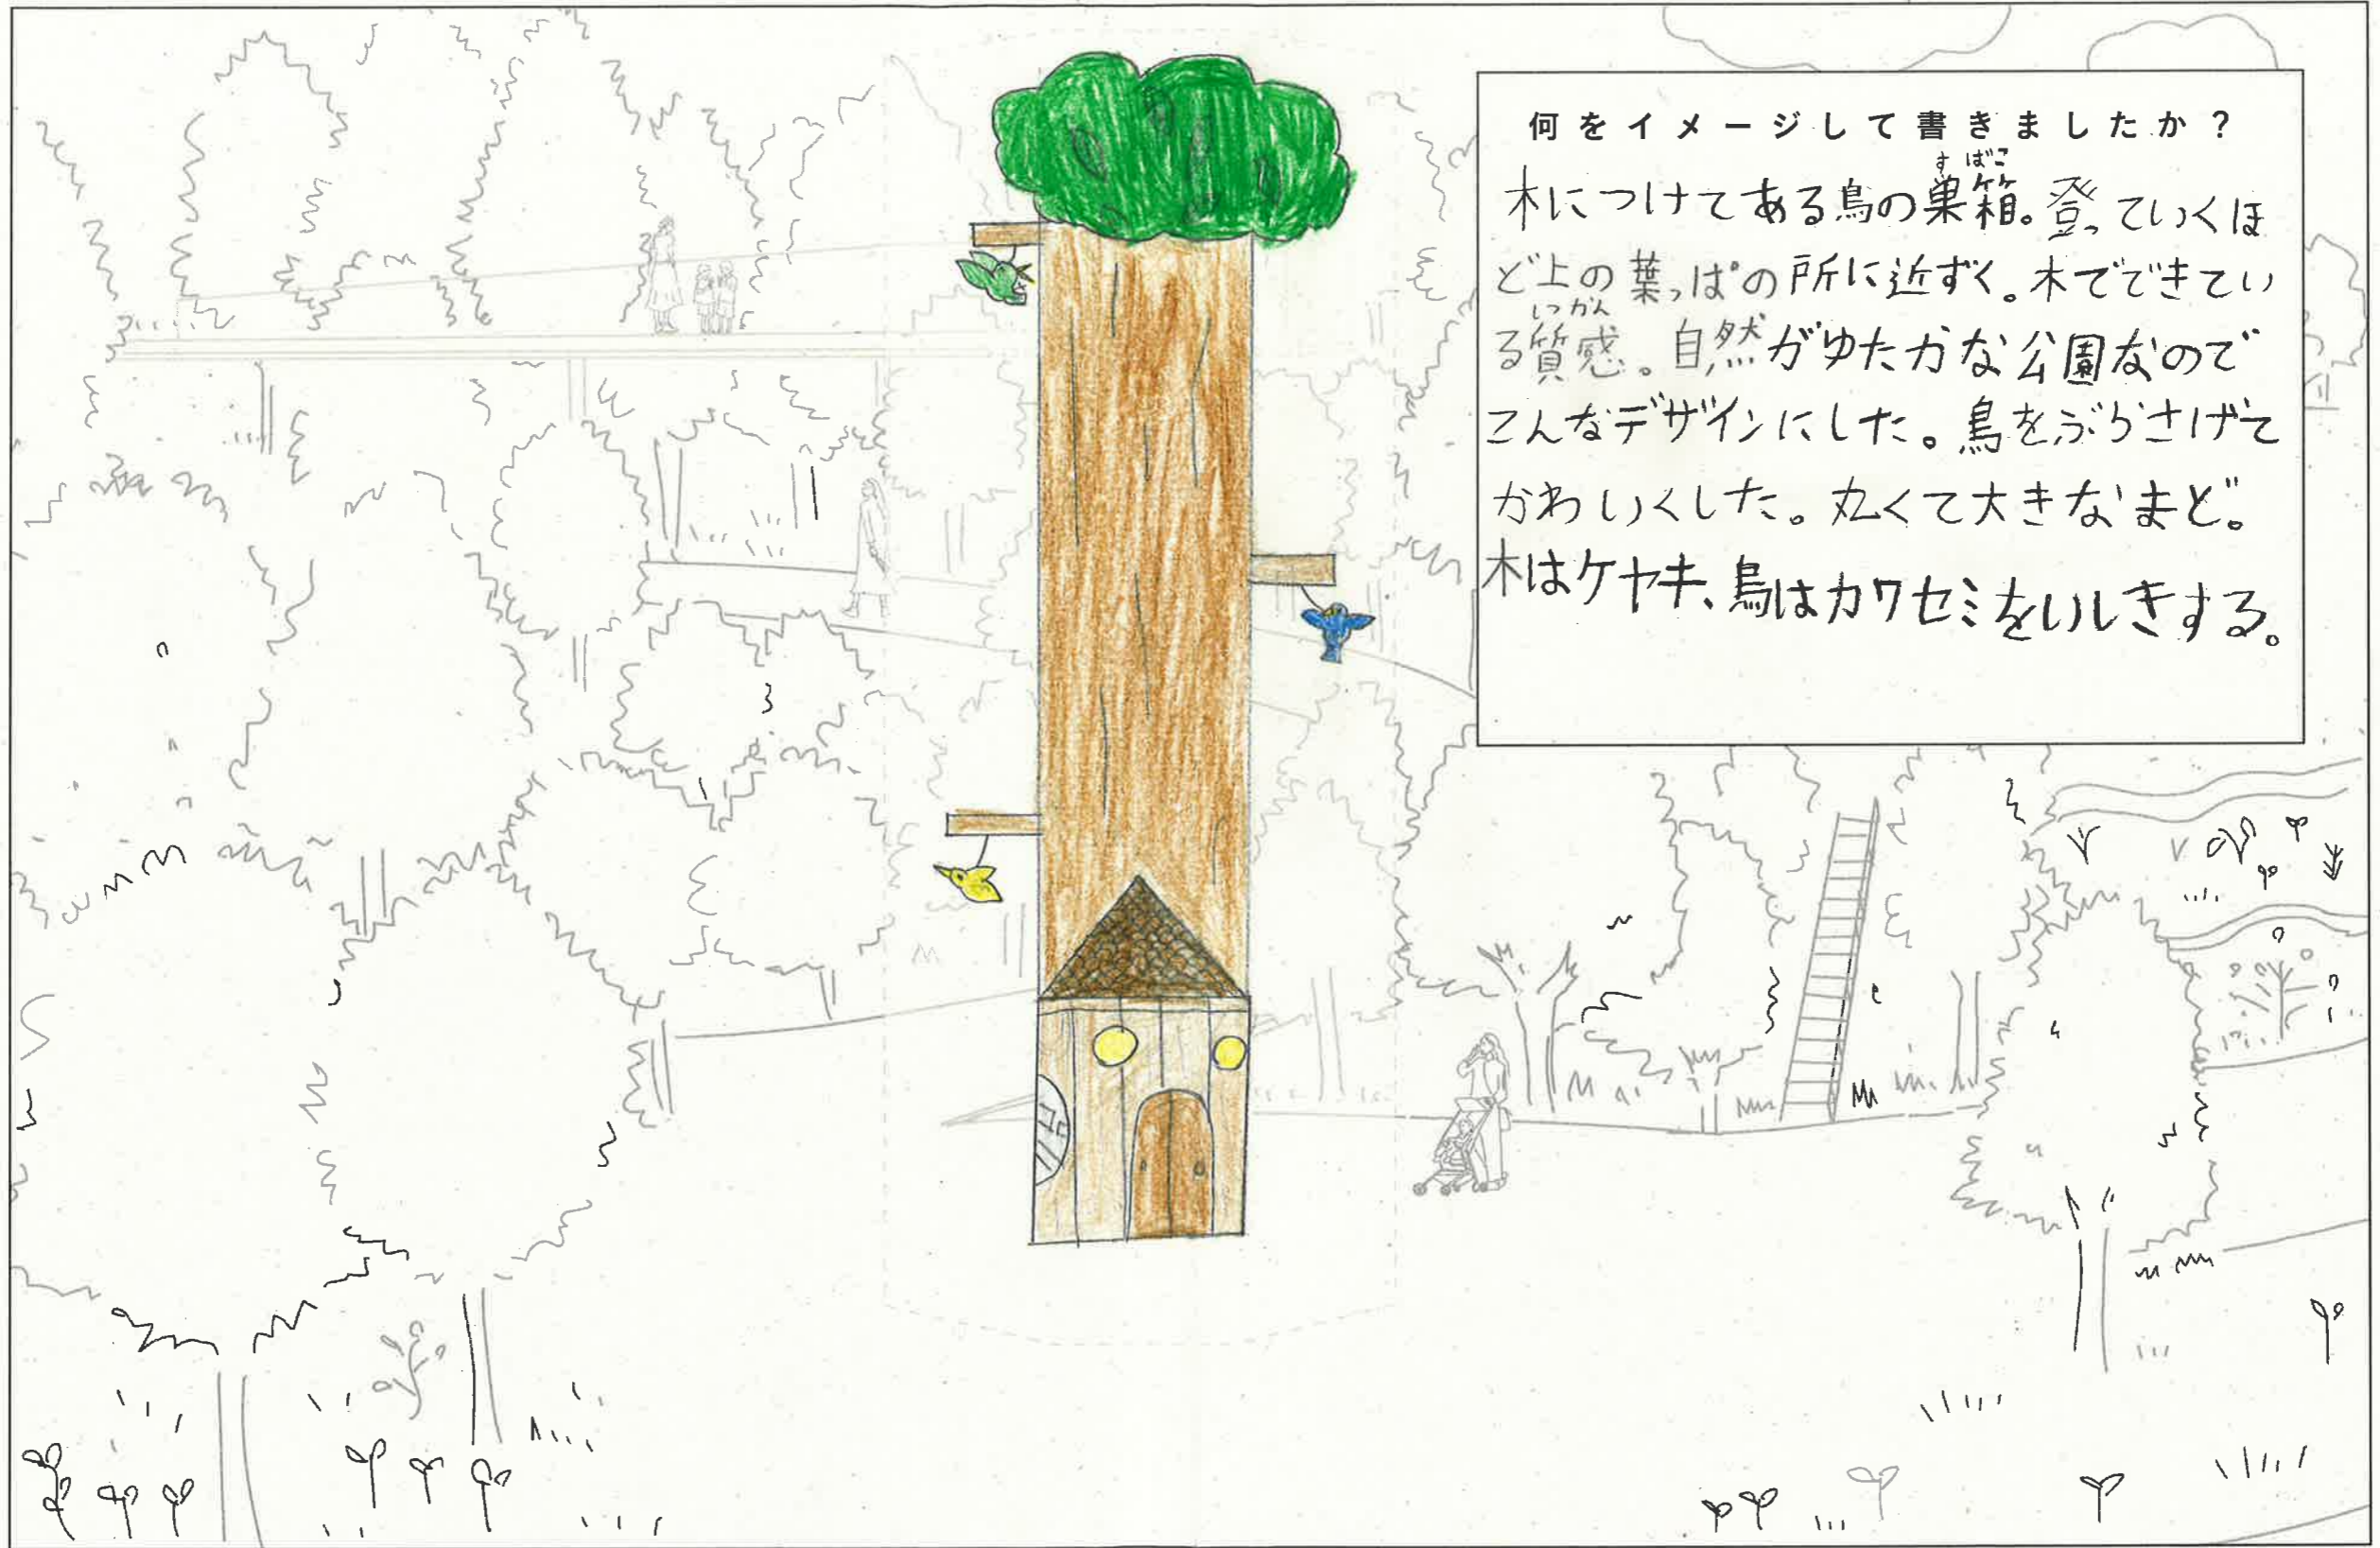 何をイメージして書きましたか？
すばこ
木につけてある鳥の巣箱。登っていくほ
ど上の葉っぱの所に近ずく。木でできてい
しつかん
る質感。自然がゆたかな公園なので
こんなデザインにした。鳥をぶらさげて
かわいくした。丸くて大きなまど。
木はケヤキ、鳥はカワセミをいしきする。